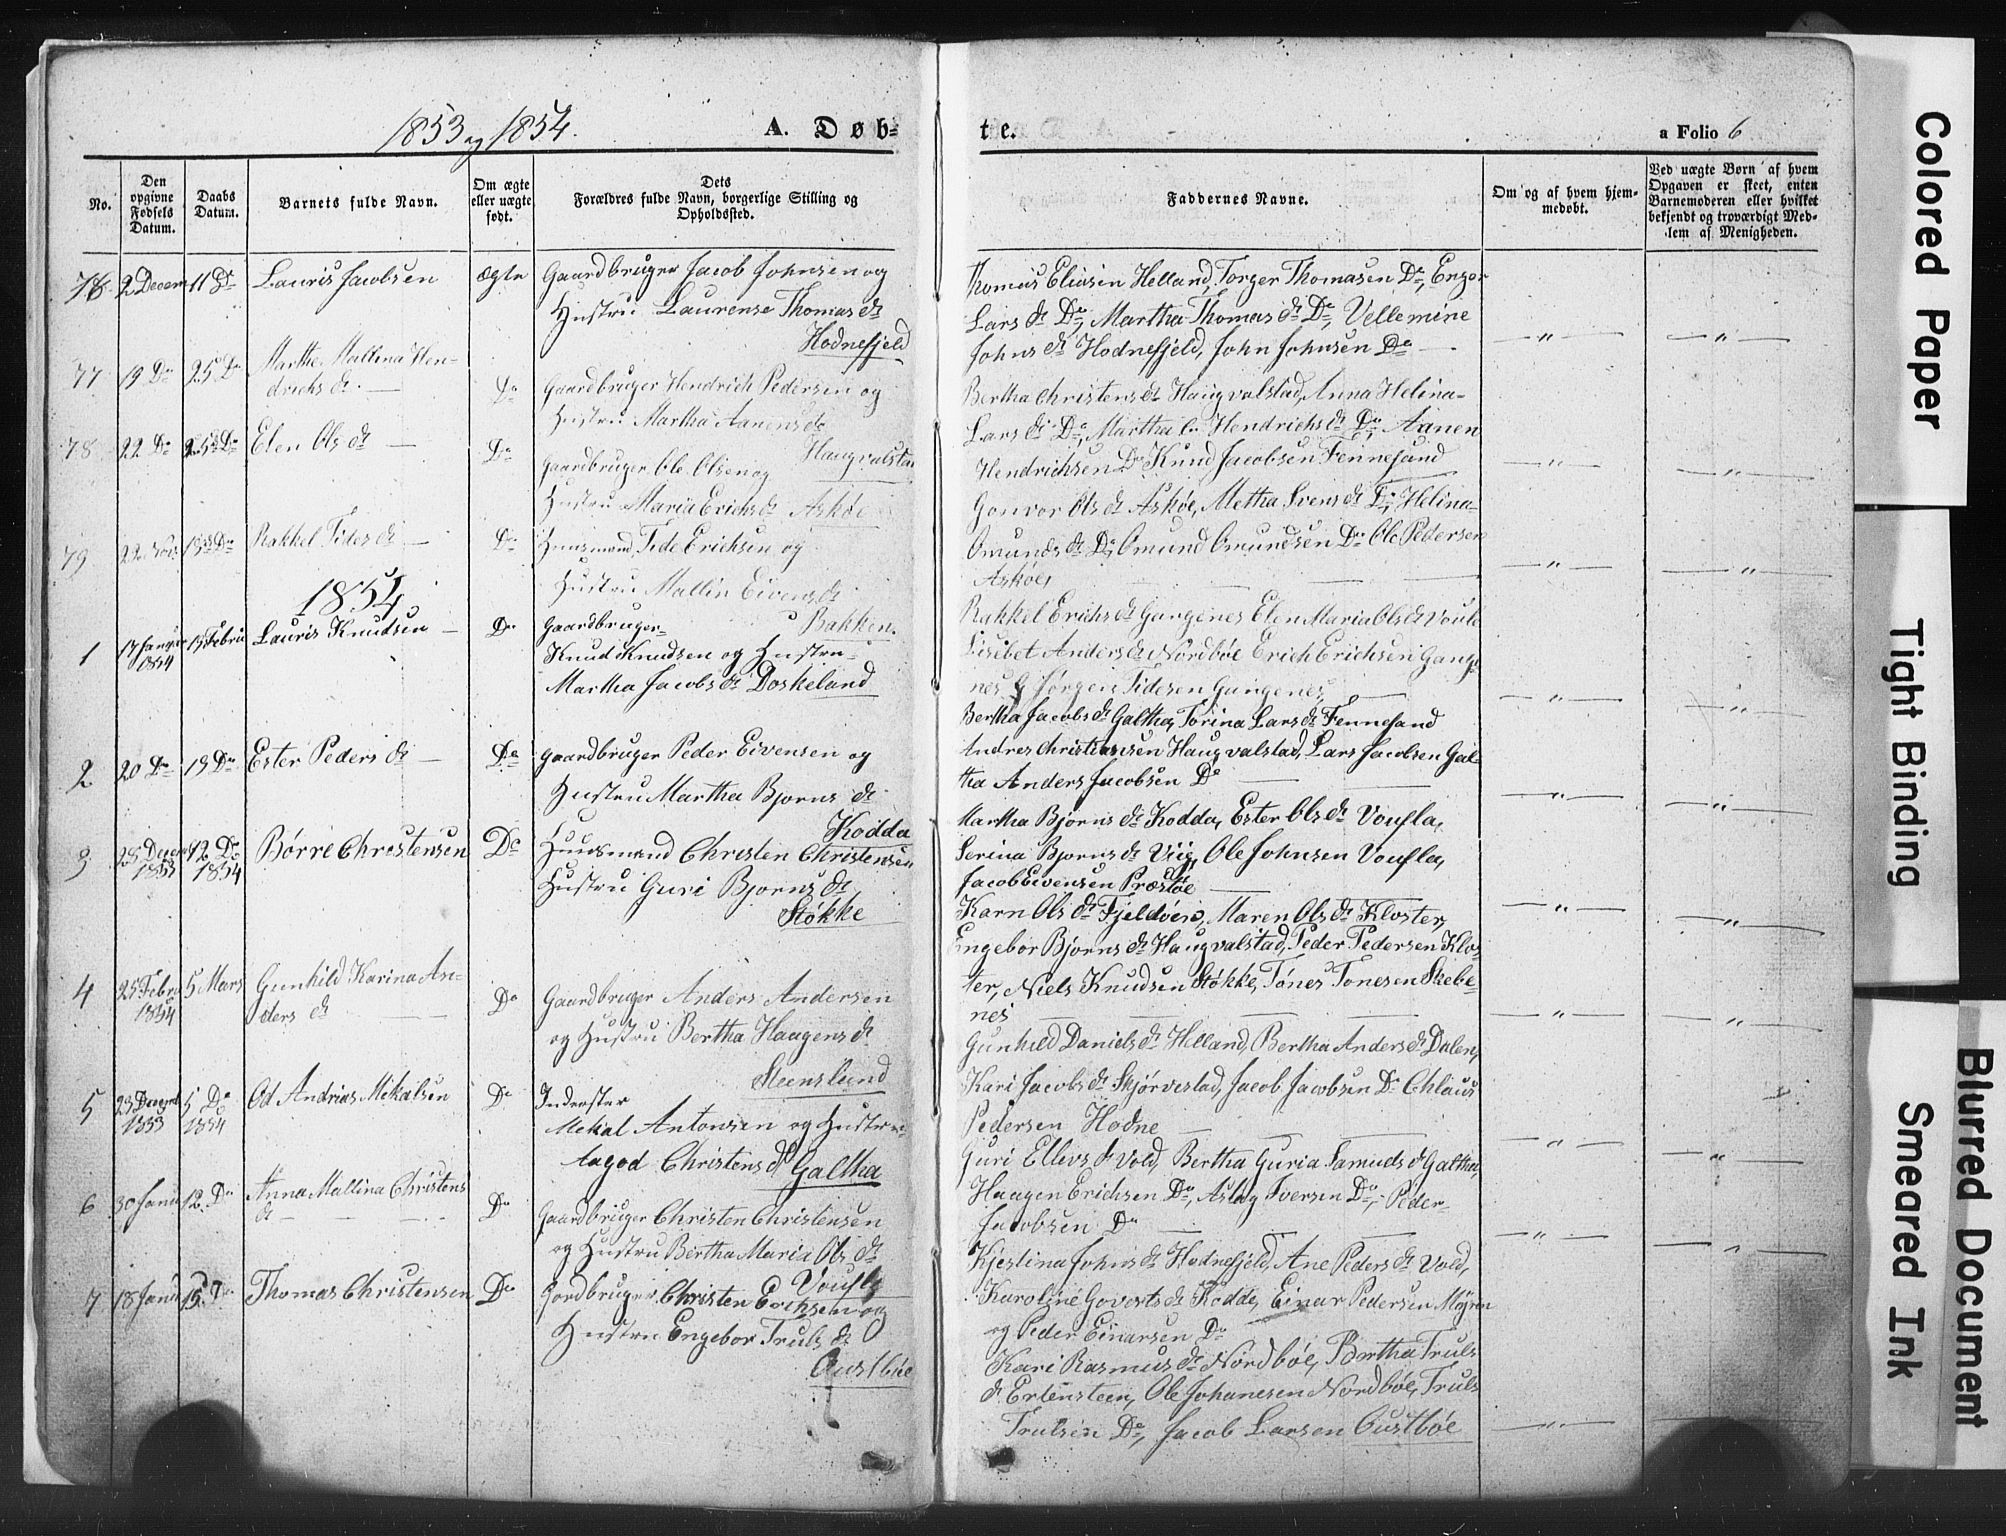 1853 og 1854.
A. Døb-
te.
a Folio 6
No.
Den opgivne Fødsels Datum.
Daabs Datum.
Barnets fulde Navn.
Om ægte eller uægte født.
Dets Forældres fulde Navn, borgerlige Stilling og Opholdssted.
Faddernes Navne.
Om og af hvem hjemmedøbt.
Ved uægte Børn af hvem Opgaven er skeet, enten Barnemoderen eller hvilket bekjendt og troværdigt Medlem af Menigheden.
76 2 Decem 11 Do Lauris Jacobsen ægte Gaardbruger Jacob Johnsen og
Hustru Laurense Thomas dr
Hodnefjeld
77 19 Do 25 Do Marthe Mallina Hen-
drichs dr Do Gaardbruger Hendrich Pedersen og
Hustru Martha Aanens dr
Haugvalstad
78 22 Do 25 Do Elen Ols dr Do Gaardbruger Ole Olsen og
Hustru Maria Erichs dr Askøe
79 22 Nov: Do Rakkel Tides dr Do Huusmand Tide Erichsen og
Hustru Mallin Eivens dr
Bakken.
1854
1 17 Januar 1854 19 Febru Lauris Knudsen Do Gaardbruger
Knud Knudsen og Hustru
Martha Jacobs dr Doskeland
2 20 Do 19 Do Ester Peders dr Do gaardbruger Peder Eivensen og
Hustru Martha Bjorns dr
Kodda
3 25 Decem 1853 12 Do 1854 Børre Christensen Do Huusmand Christen Christensen
Hustru Guri Bjorns dr
Støkke
4 25 Febru 1854 5 Mars Gunhild Karina An-
ders dr Do Gaardbruger Anders Andersen
og Hustru Bertha Haagens dr
Steensland
5 23 Decem 1853 5 Do 1854 Od Andrias Mikalsen Do Inderster
Mekal Antonsen og Hustru
Aagod Christens dr Galtha
6 30 Janu 12 Do Anna Mallina Christens
dr Do Gaardbruger Christen Christensen
og Hustru Bertha Maria Ols dr
Voufla
7 18 Janu Do Thomas Christensen Do Gordbruger Christen Erichsen og
Hustru Engebor Truls dr
Oustbøe
Thomas Eliasen Helland, Torger Thomasen Do, Enger
Lars dr Do, Martha Thomas dr Do, Vellemine
Johns dr Hodnefjeld, John Johnsen Do
Bertha Christens dr Haugvalstad, Anna Helina
Lars dr Do, Martha Hendrichs dr Do, Aanen
Hendrichsen Do Knud Jacobsen Fennesand
Gonvor Ols dr Askøe, Metha Svens dr Do, Helina
Omunds dr Do, Omund Omundsen Do Ole Pedersen
Askøe,
Rakkel Erichs dr Gangenes Elen Maria Ols dr Voufla
Lisebet Anders dr Nordbøe Erich Erichsen Gange
nes Jørgen Tidesen Gangenes,
Bertha Jacobs dr Galtha, Torina Lars dr Fennesand
Andres Christiansen Haugvalstad, Lars Jacobsen Gal-
tha Anders Jacobsen Do
Martha Bjorns dr Kodda, Ester Ols dr Voufla,
Serina Bjorns dr Viig, Ole Johnsen Voufla,
Jacob Eivensen Præstøe
Karn Ols dr Fjeldøen, Maren Ols dr Kloster,
Engebor Bjorns dr Haugvalstad, Peder Pedersen Klos-
ter, Niels Knudsen Støkke, Tønes Tonesen Skebe-
nes
Gunhild Daniels dr Helland, Bertha Anders dr Dalen,
Kari Jacobs dr Skjørvestad, Jacob Jacobsen Do Chlaus
Pedersen Hodne
Guri Ellevs dr Vold, Bertha Guria Samuels dr Galtha,
Haagen Erichsen Do, Aslag Iversen Do, Peder
Jacobsen Do
Kjestina Johns dr Hodnefjeld, Ane Peders dr Vold,
Karoline Goverts dr Kodde, Einar Pedersen
og Peder Einarsen Do
Kari Rasmus dr Nordbøe, Bertha Truls
dr Ertensteen, Ole Johanesen Nordbøe, Truls
Trulsen Do, Jacob Larsen Oustbøe
Colored Paper
Tight Binding
Blurred Document
Smeared Ink